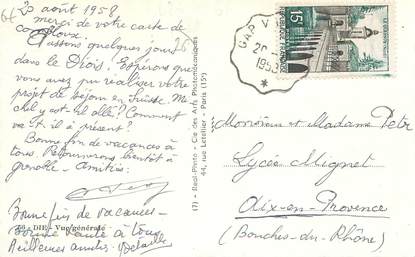 20 août 1958
merci de votre carte de
Passons quelques jours
dans le Diois. Espérons que
vous avez pu réaliser votre
projet de séjour en Suisse. Mi-
chel y est-il allé? Comment
va-t-il à présent?
Bonne fin de vacances à
tous. Retournerons bientôt à
Grenoble - Amitiés
Bonne fin de vacances -
26 - DIE - Vue générale
Bonne santé à tous
Meilleures amitiés.
(7) - Real-Photo - Cie des Arts Photomécaniques
44, rue Letellier - Paris (15e)
GAP V
20-8
1958
15F
RÉPUBLIQUE FRANÇAISE
LE QUESNOY
Monsieur et Madame Petr
Lycée Mignet
Aix-en-Provence
(Bouches-du-Rhône)